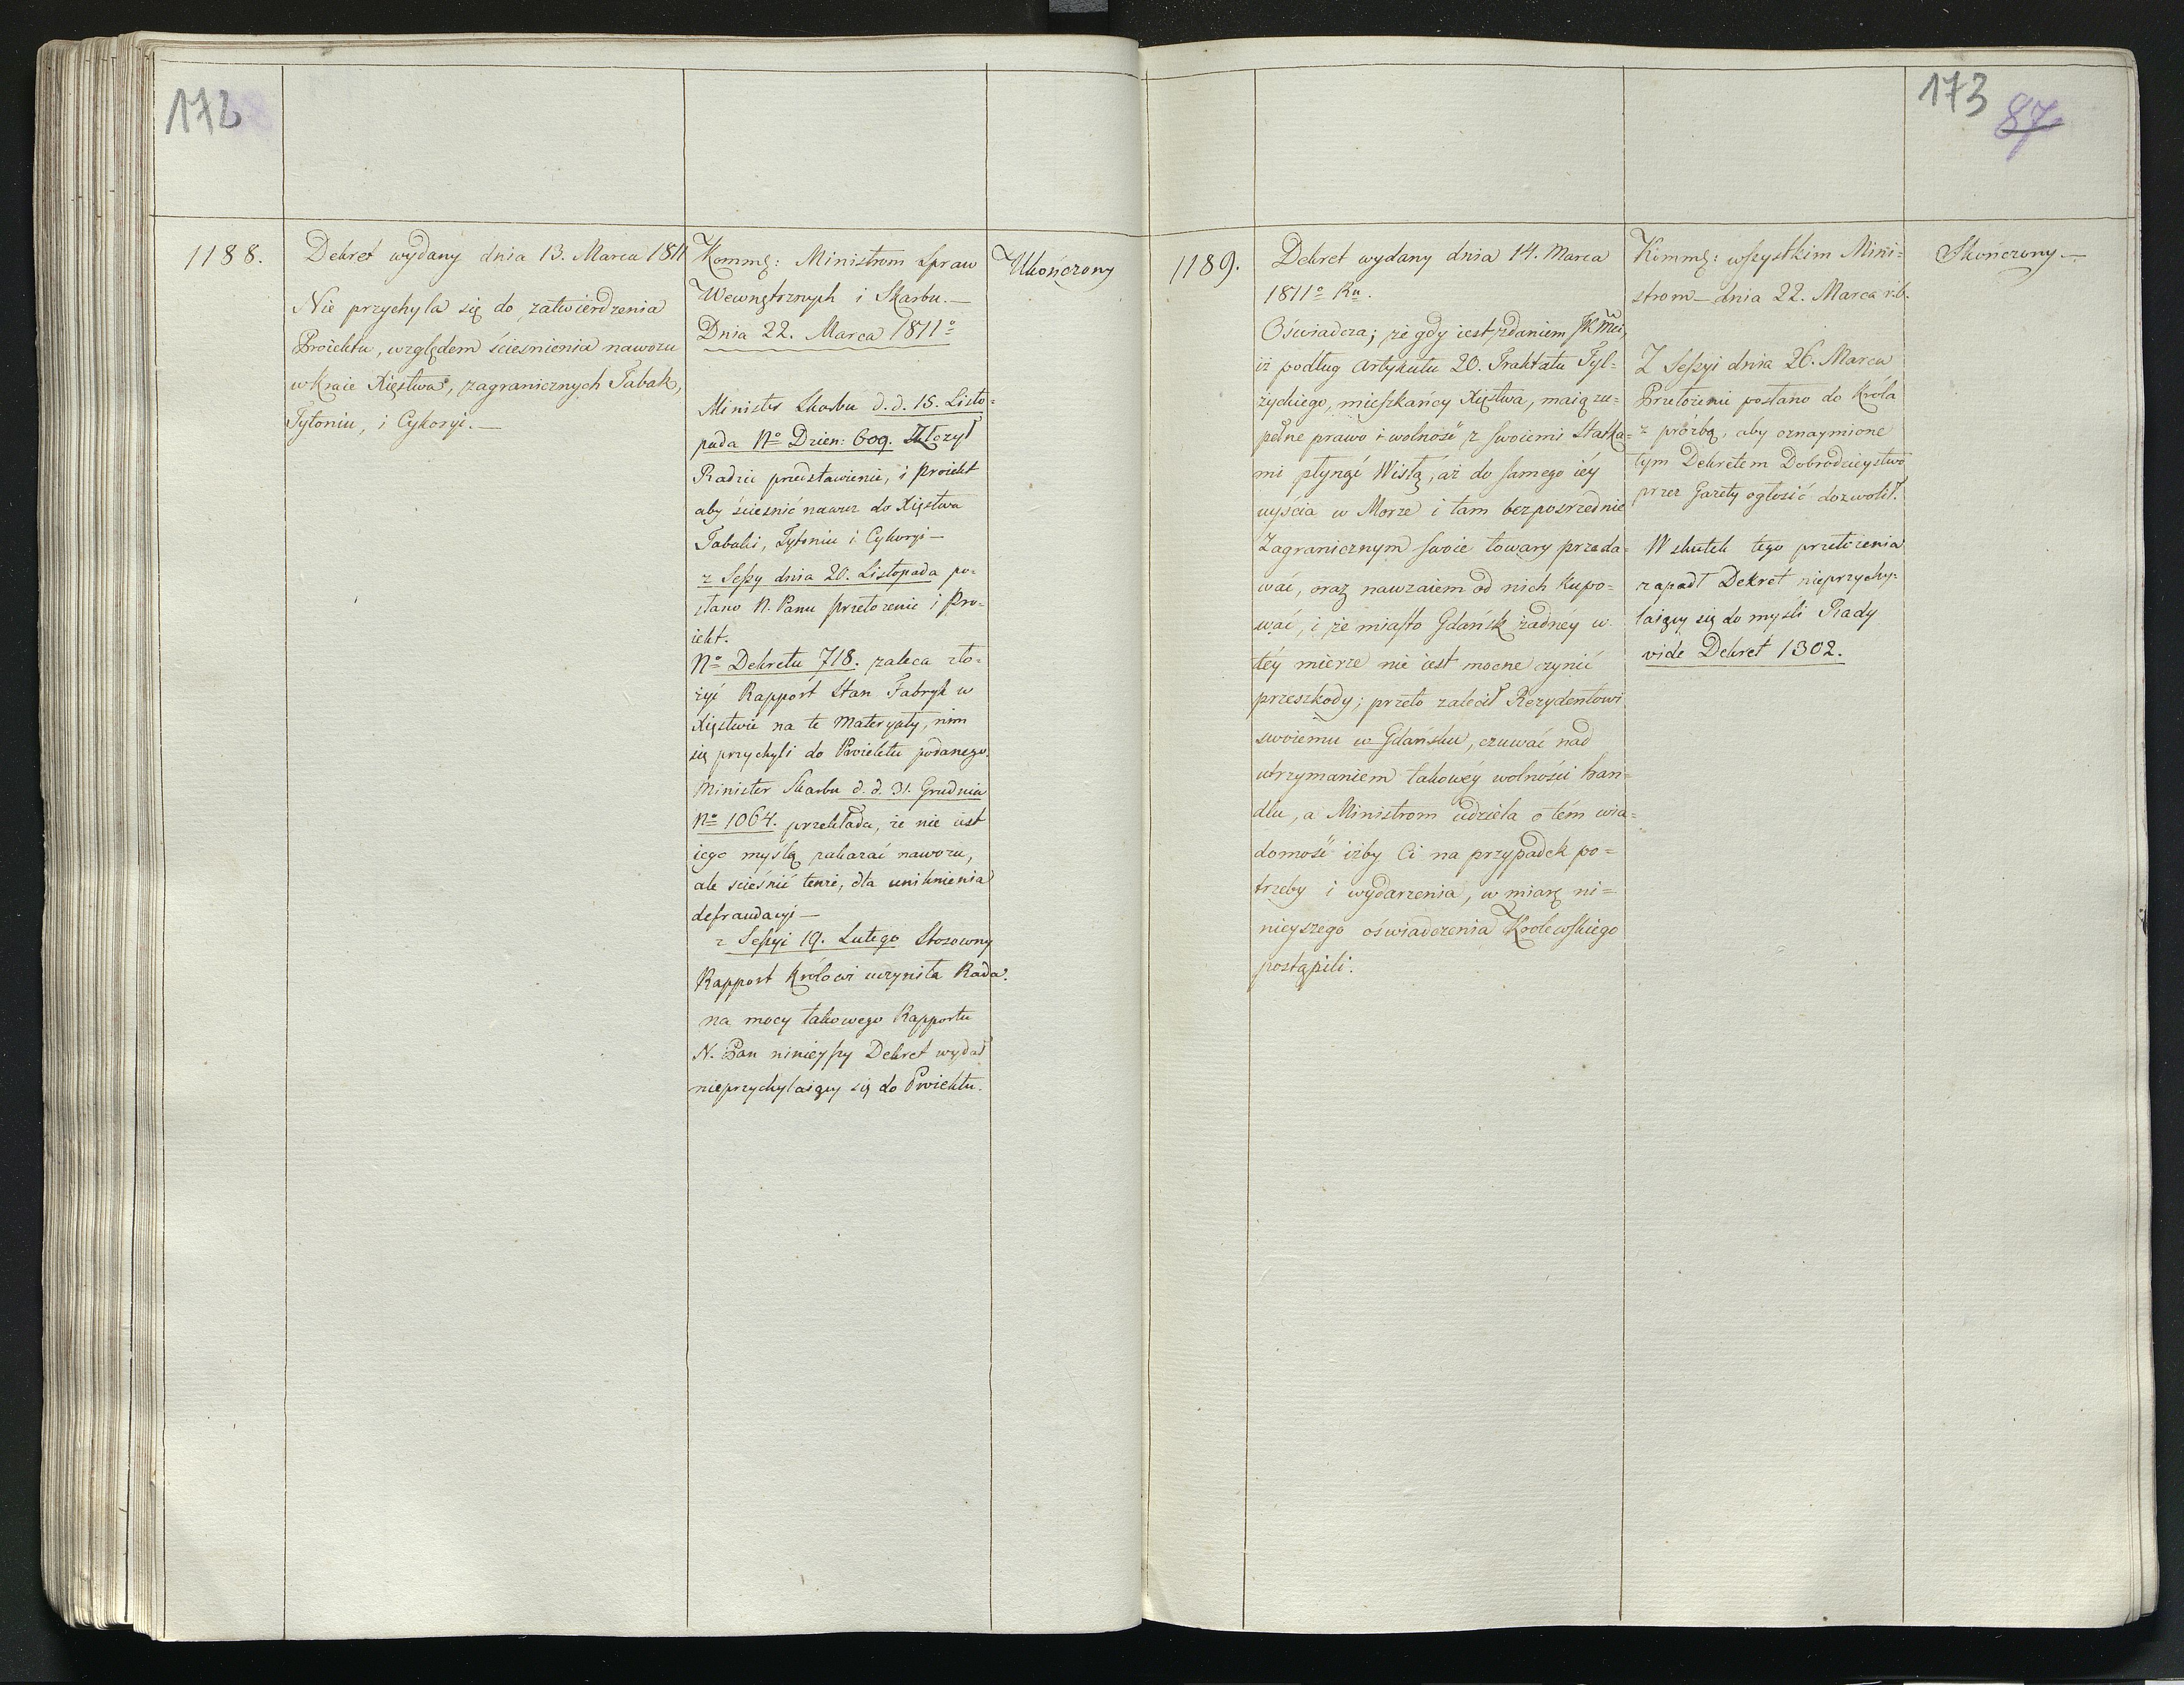 172
1188.
Dekret wydany dnia 13. Marca 1811
Nie przychyla się do zatwierdzenia
Proiektu, względem ścieśnienia nawozu
w kraie Xięstwa, zagranicznych Tabak,
Tytoniu, i Cykoryi. —
Kommg: Ministrom Spraw
Wewnętrznych i Skarbu. —
Dnia 22. Marca 1811o
Minister Skarbu d. d. 15. Listo=
pada No Dzien: 609. złożył
Radzie przedstawienie, i Proiekt
aby ścieśnić nawoz do Xięstwa
Tabaki, Tytoniu i Cykoryi —
z Seszy dnia 20. Listopada po=
słano N. Panu przełożenie i Pro=
iekt.
No Dekretu 718. zaleca zło=
żyć Rapport Stan Fabryk w
Xięstwie na te Materyały, nim
się przychyli do Proiektu podanego.
Minister Skarbu d. d. 31. Grudnia
No 1064. przekłada, że nie iest
iego myślą zakazać nawozu,
ale scieśnić tenże, dla uniknienia
defraudacyi —
z Sessyi 19. Lutego Stosowny
Rapport Królowi uczyniła Rada.
na mocy takowego Rapportu
N. Pan ninieyszy Dekret wydał
nieprzychylaiący się do Proiektu.
Ukończony
173
87
1189.
Dekret wydany dnia 14. Marca
1811o Ru.
Oświadcza; że gdy iest zdaniem JKMci,
iż podług Artykułu 20. Traktatu Tyl=
życkiego, mieszkańcy Xięstwa, maią zu=
pełne prawo i wolność z swoiemi Statka=
mi płynąć Wisłą, aż do samego iéy
uyścia w Morze i tam bezpośrzednie
Zagranicznym swoie towary przeda=
wać, oraz nawzaiem od nich kupo=
wać, i że miasto Gdańsk żadnéy w
téy mierze nie iest mocne czynić
przeszkody; przeto zalecił Rezydentowi
swoiemu w Gdańsku, czuwać nad
utrzymaniem takowéy wolności han=
dlu, a Ministrom udziela o tém wia=
domość iżby Ci na przypadek po=
trzeby i wydarzenia, w miarę ni=
nieyszego oświadczenia Krolewskiego
postąpili.
Kommg: wszystkim Mini=
strom — dnia 22. Marca r.b.
Z Sessyi dnia 26. Marca
Przełożenie posłano do Króla
z prózbą, aby oznaymione
tym Dekretem Dobrodzieystwo
przez Gazety ogłosić dozwolił.
W skutek tego przełożenia
zapadł Dekret nieprzychy=
laiący się do myśli Rady
vide Dekret 1302.
Skończony —